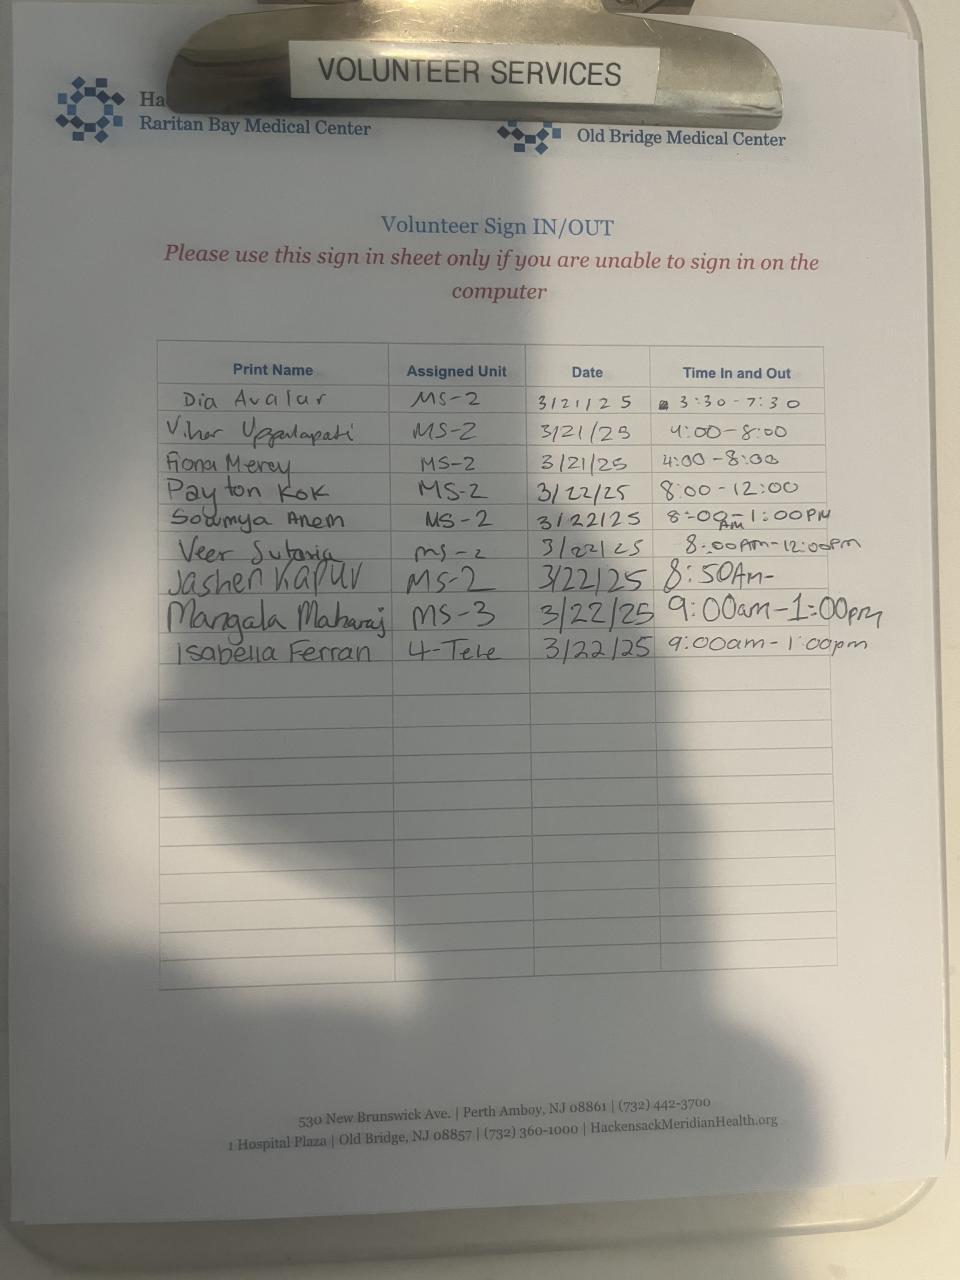 VOLUNTEER SERVICES
Ha
Raritan Bay Medical Center
Old Bridge Medical Center
Volunteer Sign IN/OUT
Please use this sign in sheet only if you are unable to sign in on the
computer
Print Name Assigned Unit Date Time In and Out
Dia Avalar MS-2 3/21/25 3:30-7:30
Vihar Uppalapati MS-2 3/21/25 4:00-8:00
Fiona Mercy MS-2 3/21/25 4:00-8:00
Payton Kok MS-2 3/22/25 8:00-12:00
Sowmya Anem MS-2 3/22/25 8:00AM-1:00PM
Veer Sutaria MS-2 3/22/25 8:00AM-12:00PM
Jashen Kapur MS-2 3/22/25 8:50Am-
Mangala Maharaj MS-3 3/22/25 9:00am-1:00pm
Isabella Ferran 4-Tele 3/22/25 9:00am-1:00pm
530 New Brunswick Ave. | Perth Amboy, NJ 08861 | (732) 442-3700
1 Hospital Plaza | Old Bridge, NJ 08857 | (732) 360-1000 | HackensackMeridianHealth.org